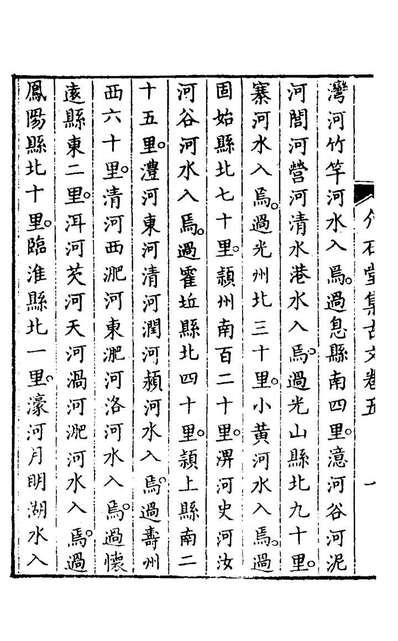 灣河竹竿河水入焉過息縣南四里澺河谷河泥
河閭河營河清水港水入焉過光山縣北九十里
寨河水入焉過光州北三十里小黃河水入焉過
固始縣北七十里潁州南百二十里淠河史河汝
河谷河水入焉過霍丘縣北四十里潁上縣南二
十五里灃河東河清河潤河潁河水入焉過壽州
西六十里清河西淝河東淝河洛河水入焉過懷
遠縣東二里洱河芡河天河渦河淝河水入焉過
鳳陽縣北十里臨淮縣北一里濠河月明湖水入
介石堂集古文卷五
一